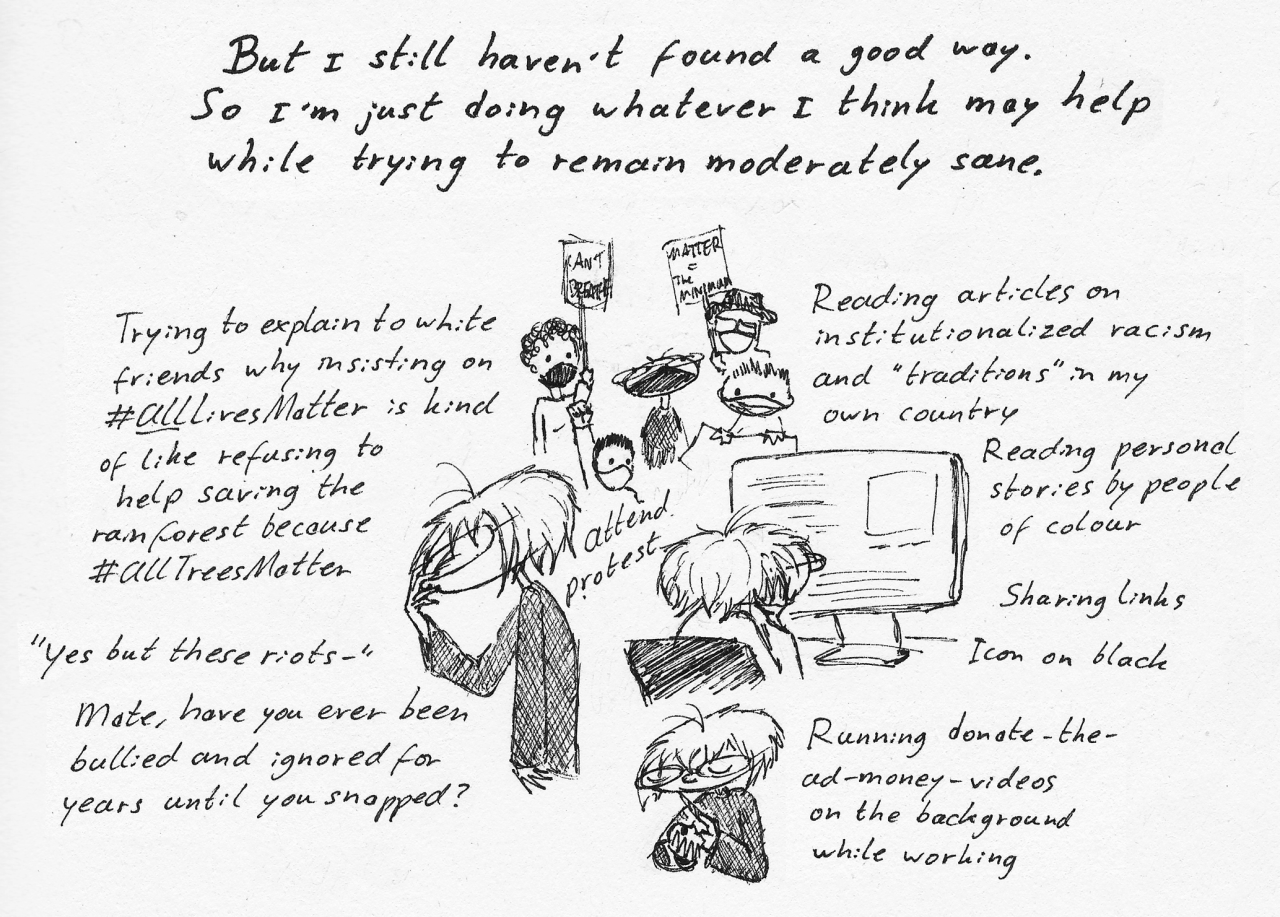 But I still haven't found a good way.
So I'm just doing whatever I think may help
while trying to remain moderately sane.
CAN'T
BREATHE
MATTER
=
The
MINIMUM
Trying to explain to white
friends why insisting on
#allLivesMatter is kind
of like refusing to
help saving the
rainforest because
#allTreesMatter
"Yes but these riots-"
Mate, have you ever been
bullied and ignored for
years until you snapped?
attend
protest
Reading articles on
institutionalized racism
and "traditions" in my
own country
Reading personal
stories by people
of colour
Sharing links
Icon on black
Running donate-the-
ad-money-videos
on the background
while working